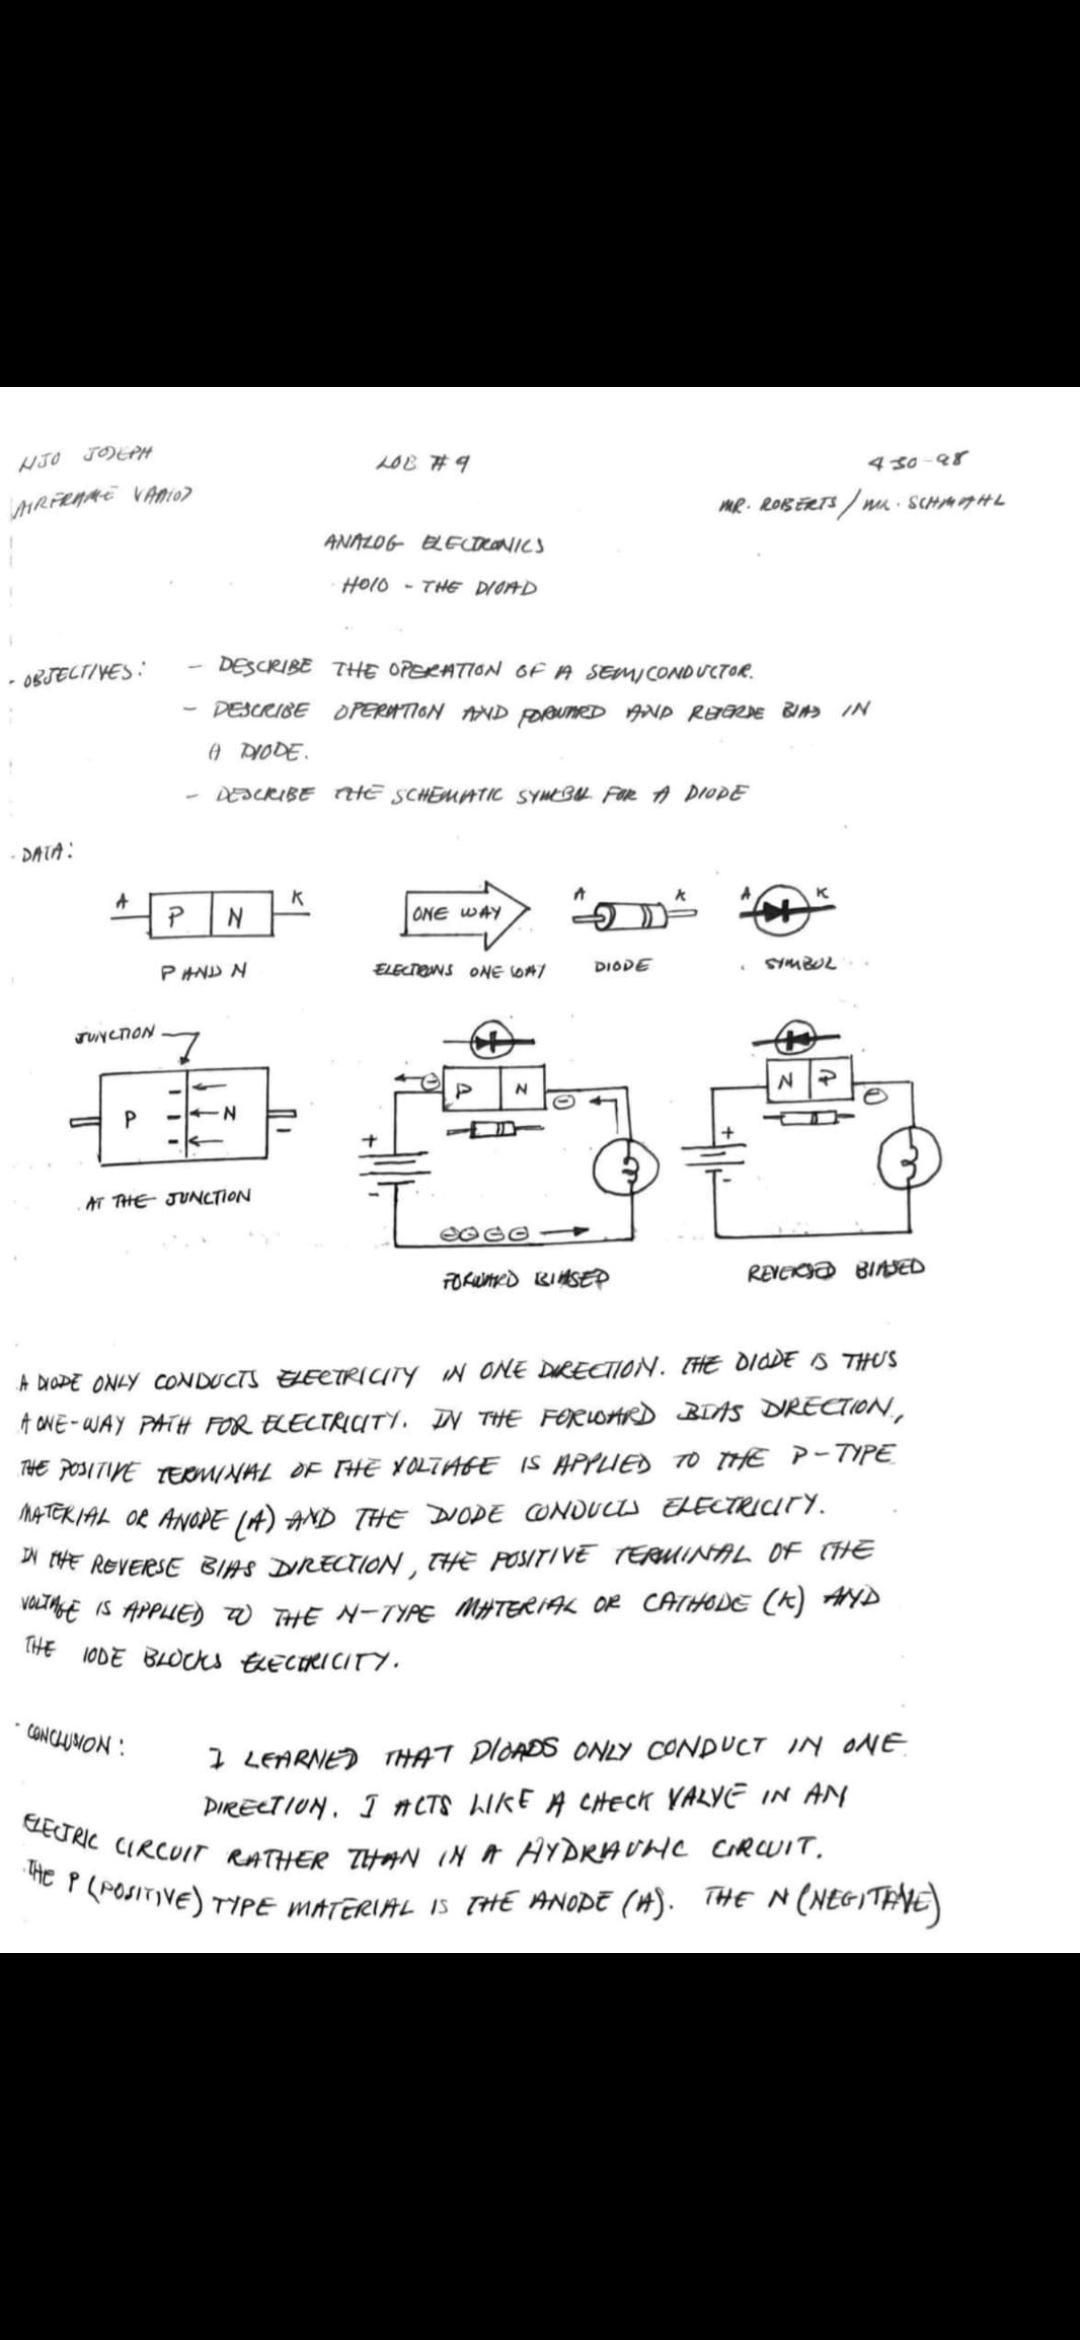 NJO JOSEPH
LOB # 9
4-30-98
AIRFRAME
MR. ROBERTS / MR. SCHMAHL
ANALOG ELECTRONICS
HO10 - THE DIOAD
- OBJECTIVES: - DESCRIBE THE OPERATION OF A SEMICONDUCTOR.
- DESCRIBE OPERATION AND FORWARD AND REVERSE BIAS IN
A DIODE.
- DESCRIBE THE SCHEMATIC SYMBOL FOR A DIODE
- DATA:
A P N K
ONE WAY
A K
A K
P AND N
ELECTRONS ONE WAY
DIODE
SYMBOL
JUNCTION
P - - - N -
AT THE JUNCTION
- P N -
+ -
- - - -
FORWARD BIASED
N P -
+ -
REVERSED BIASED
A DIODE ONLY CONDUCTS ELECTRICITY IN ONE DIRECTION. THE DIODE IS THUS
A ONE-WAY PATH FOR ELECTRICITY. IN THE FORWARD BIAS DIRECTION,
THE POSITIVE TERMINAL OF THE VOLTAGE IS APPLIED TO THE P-TYPE
MATERIAL OR ANODE (A) AND THE DIODE CONDUCTS ELECTRICITY.
IN THE REVERSE BIAS DIRECTION, THE POSITIVE TERMINAL OF THE
VOLTAGE IS APPLIED TO THE N-TYPE MATERIAL OR CATHODE (K) AND
THE IODE BLOCKS ELECTRICITY.
- CONCLUSION: I LEARNED THAT DIOADS ONLY CONDUCT IN ONE
DIRECTION. I ACTS LIKE A CHECK VALVE IN AN
ELECTRIC CIRCUIT RATHER THAN IN A HYDRAULIC CIRCUIT.
THE P (POSITIVE) TYPE MATERIAL IS THE ANODE (A). THE N (NEGITAVE)